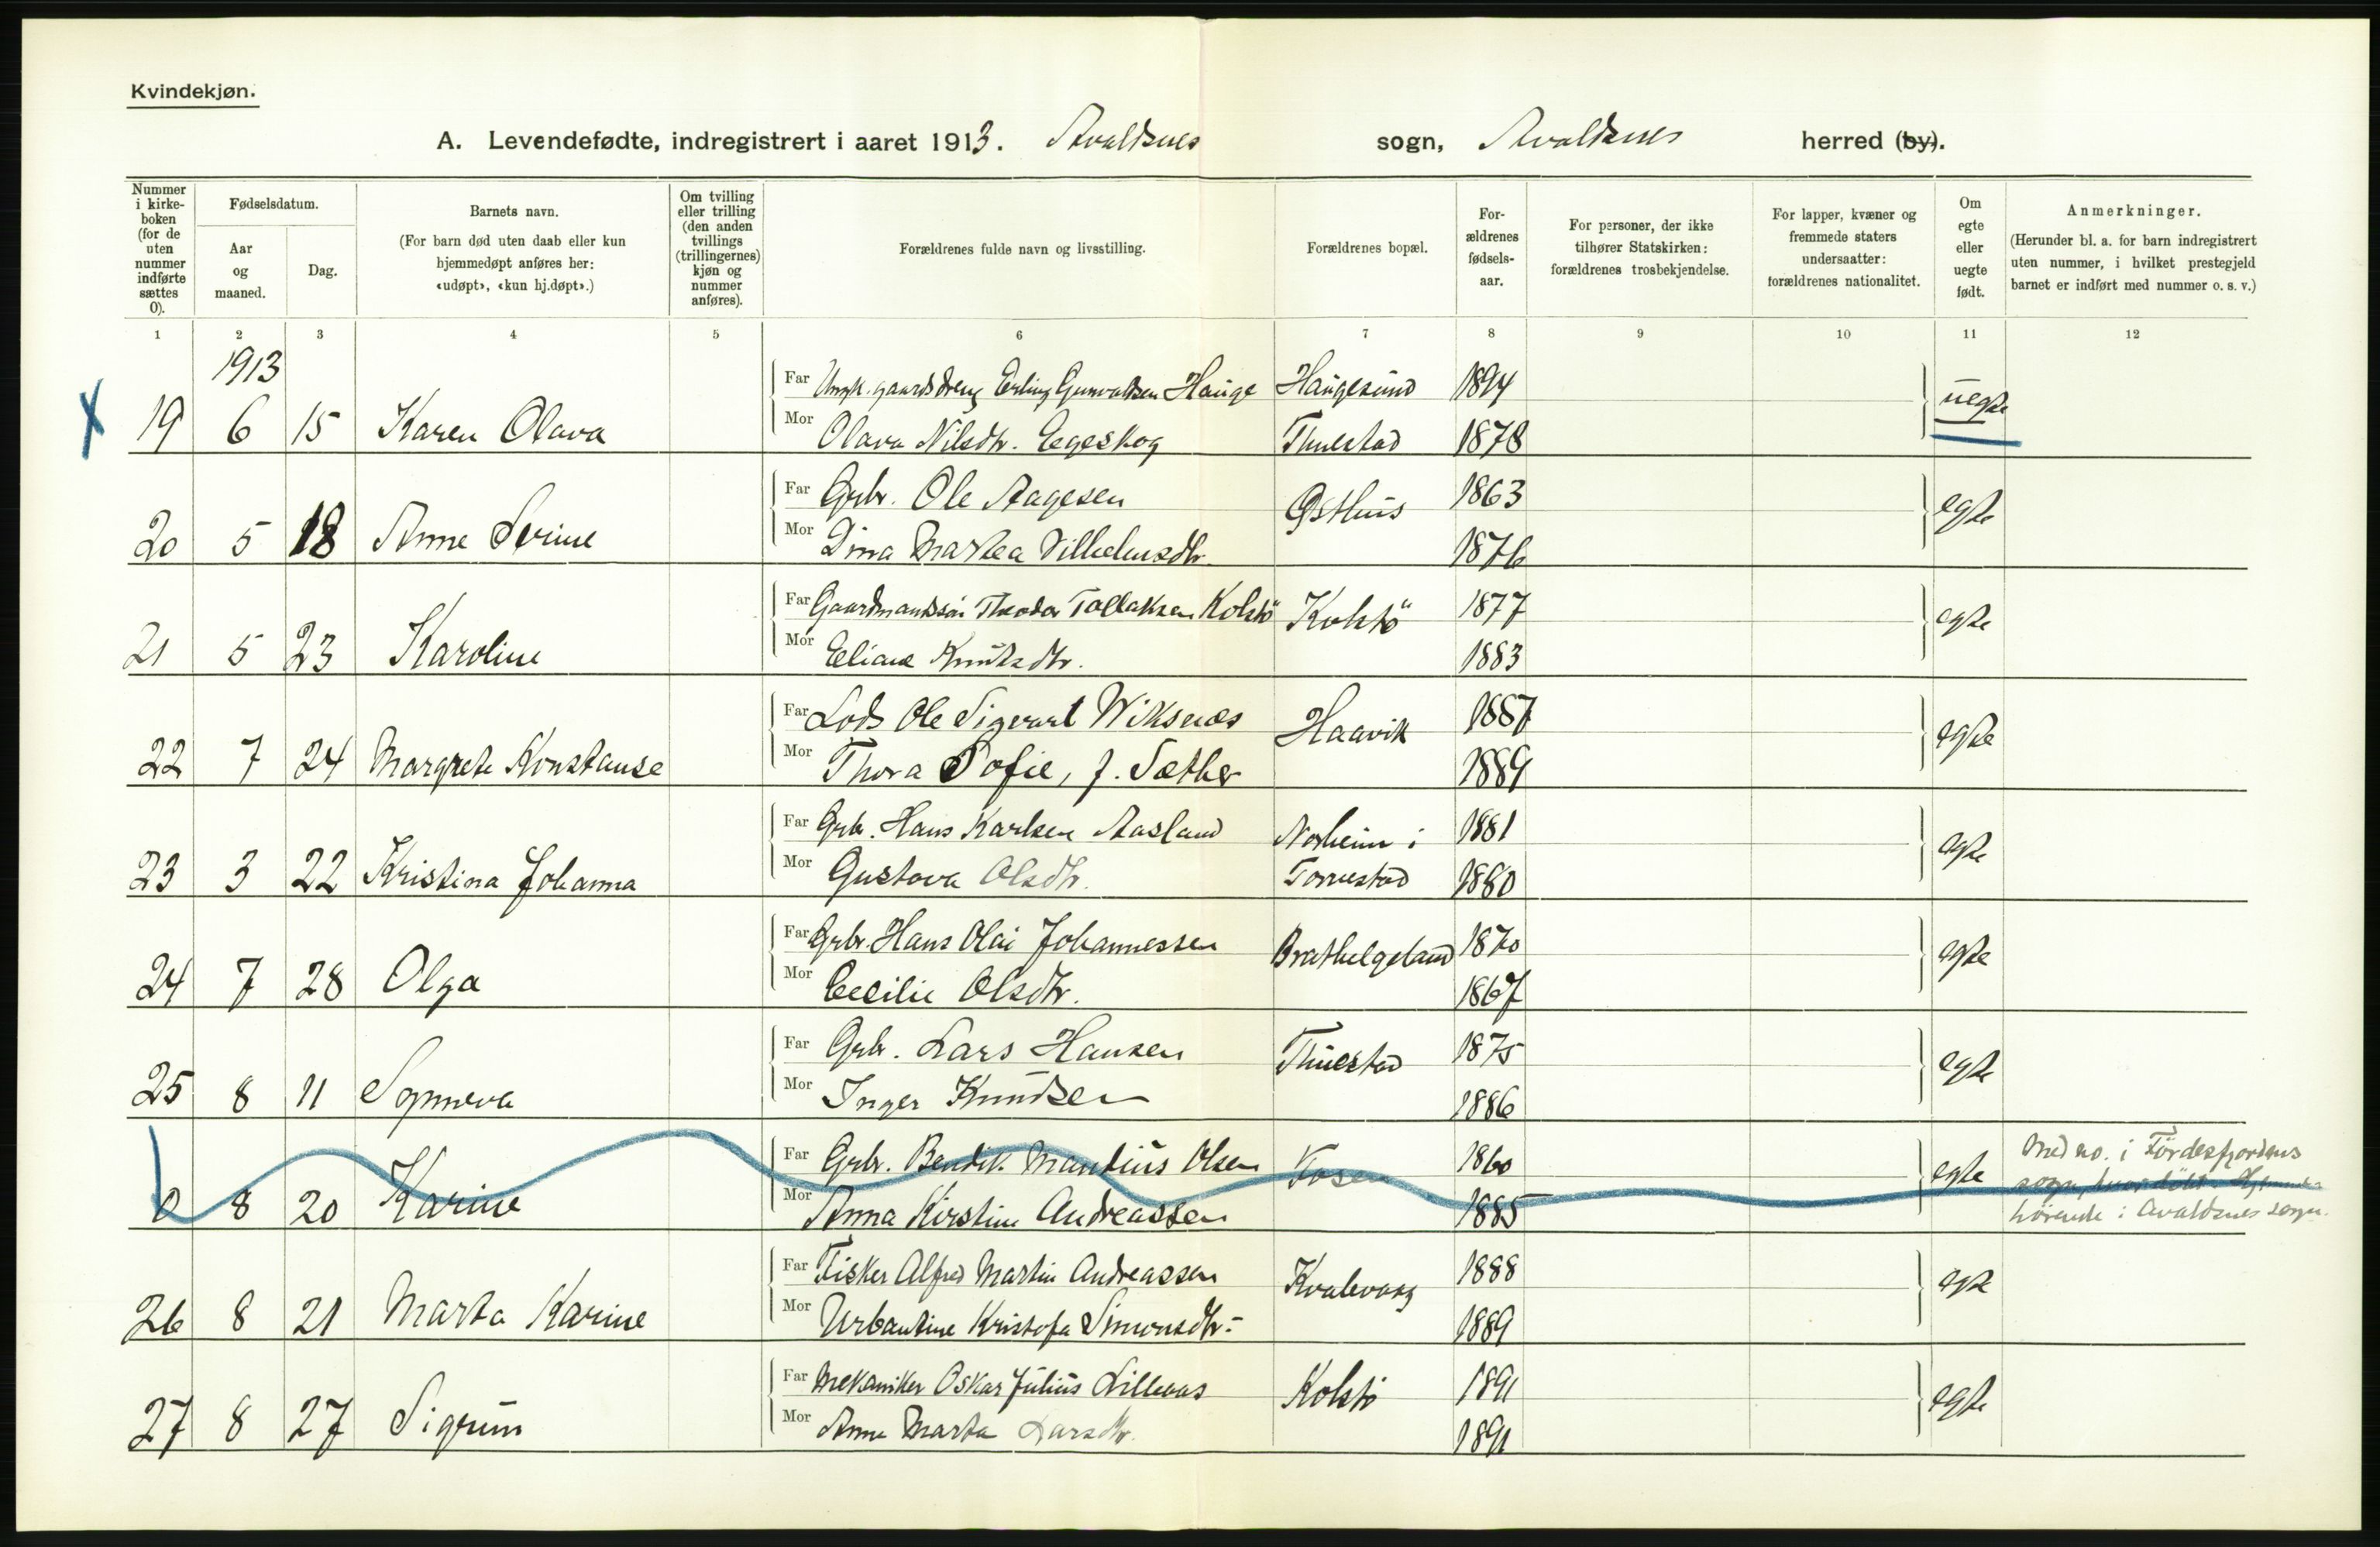 Kvindekjøn.
A. Levendefødte, indregistrert i aaret 1913. Avaldsnes sogn, Avaldsnes herred (by).
Nummer i kirke-boken (for de uten nummer indførte sættes 0).
Fødselsdatum.
Aar og maaned.
Dag.
Barnets navn.
(For barn død uten daab eller kun hjemmedøpt anføres her: «udøpt», «kun hj.døpt».)
Om tvilling eller trilling (den anden tvillings (trillingernes) kjøn og nummer anføres).
Forældrenes fulde navn og livsstilling.
Forældrenes bopæl.
For-ældrenes fødsels-aar.
For personer, der ikke tilhører Statskirken: forældrenes trosbekjendelse.
For lapper, kvæner og fremmede staters undersaatter: forældrenes nationalitet.
Om egte eller uegte født.
Anmerkninger.
(Herunder bl. a. for barn indregistrert uten nummer, i hvilket prestegjeld barnet er indført med nummer o. s. v.)
1 2 3 4 5 6 7 8 9 10 11 12
1913
Far Ungk. gaardsdreng Erling Gunvaldsen Hauge Haugesund 1894
X 19 6 15 Karen Olava uegte
Mor Olava Nilsdtr. Eegeskog Thuestad 1878
Far Grbr. Ole Aagesen Østhus 1863
20 5 18 Anne Serine egte
Mor Dina Martea Vilhelmsdtr. 1876
Far Gaardmandssøn Theodor Tollaksen Kolstö Kolstö 1877
21 5 23 Karoline egte
Mor Eliane Knutsdtr. 1883
Far Lods Ole Sigvart Wiksnæs Haavik 1887
22 7 24 Margrete Konstanse egte
Mor Thora Sofie, f. Sæther 1889
Far Grb. Hans Karlsen Aasland Norheim i 1881
23 3 22 Kristina Johanna egte
Mor Gustava Olsdtr. Torvestad 1880
Far Grbr. Hans Olai Johannessen Brathelgeland 1870
24 7 28 Olga egte
Mor Cecilie Olsdtr. 1867
Far Grbr. Lars Hansen Thuestad 1875
25 8 11 Synneva egte
Mor Inger Knudsen 1886
Far Grbr. Bendik Mantius Olsen Fosen 1860
0 8 20 Karine egte
Mor Anna Kirstine Andreassen 1885
Med no. i Førdesfjordens
sogn, hvor döbt.
hörende i Avaldsnes sogn.
Far Fisker Alfred Martin Andreassen Kvalevaag 1888
26 8 21 Marta Karine egte
Mor Urbantine Kristofa Simonsdtr. 1889
Far Mekaniker Oskar Julius Lillenes Kolstö 1891
27 8 27 Sigrun egte
Mor Anne Marta Larsdtr. 1891